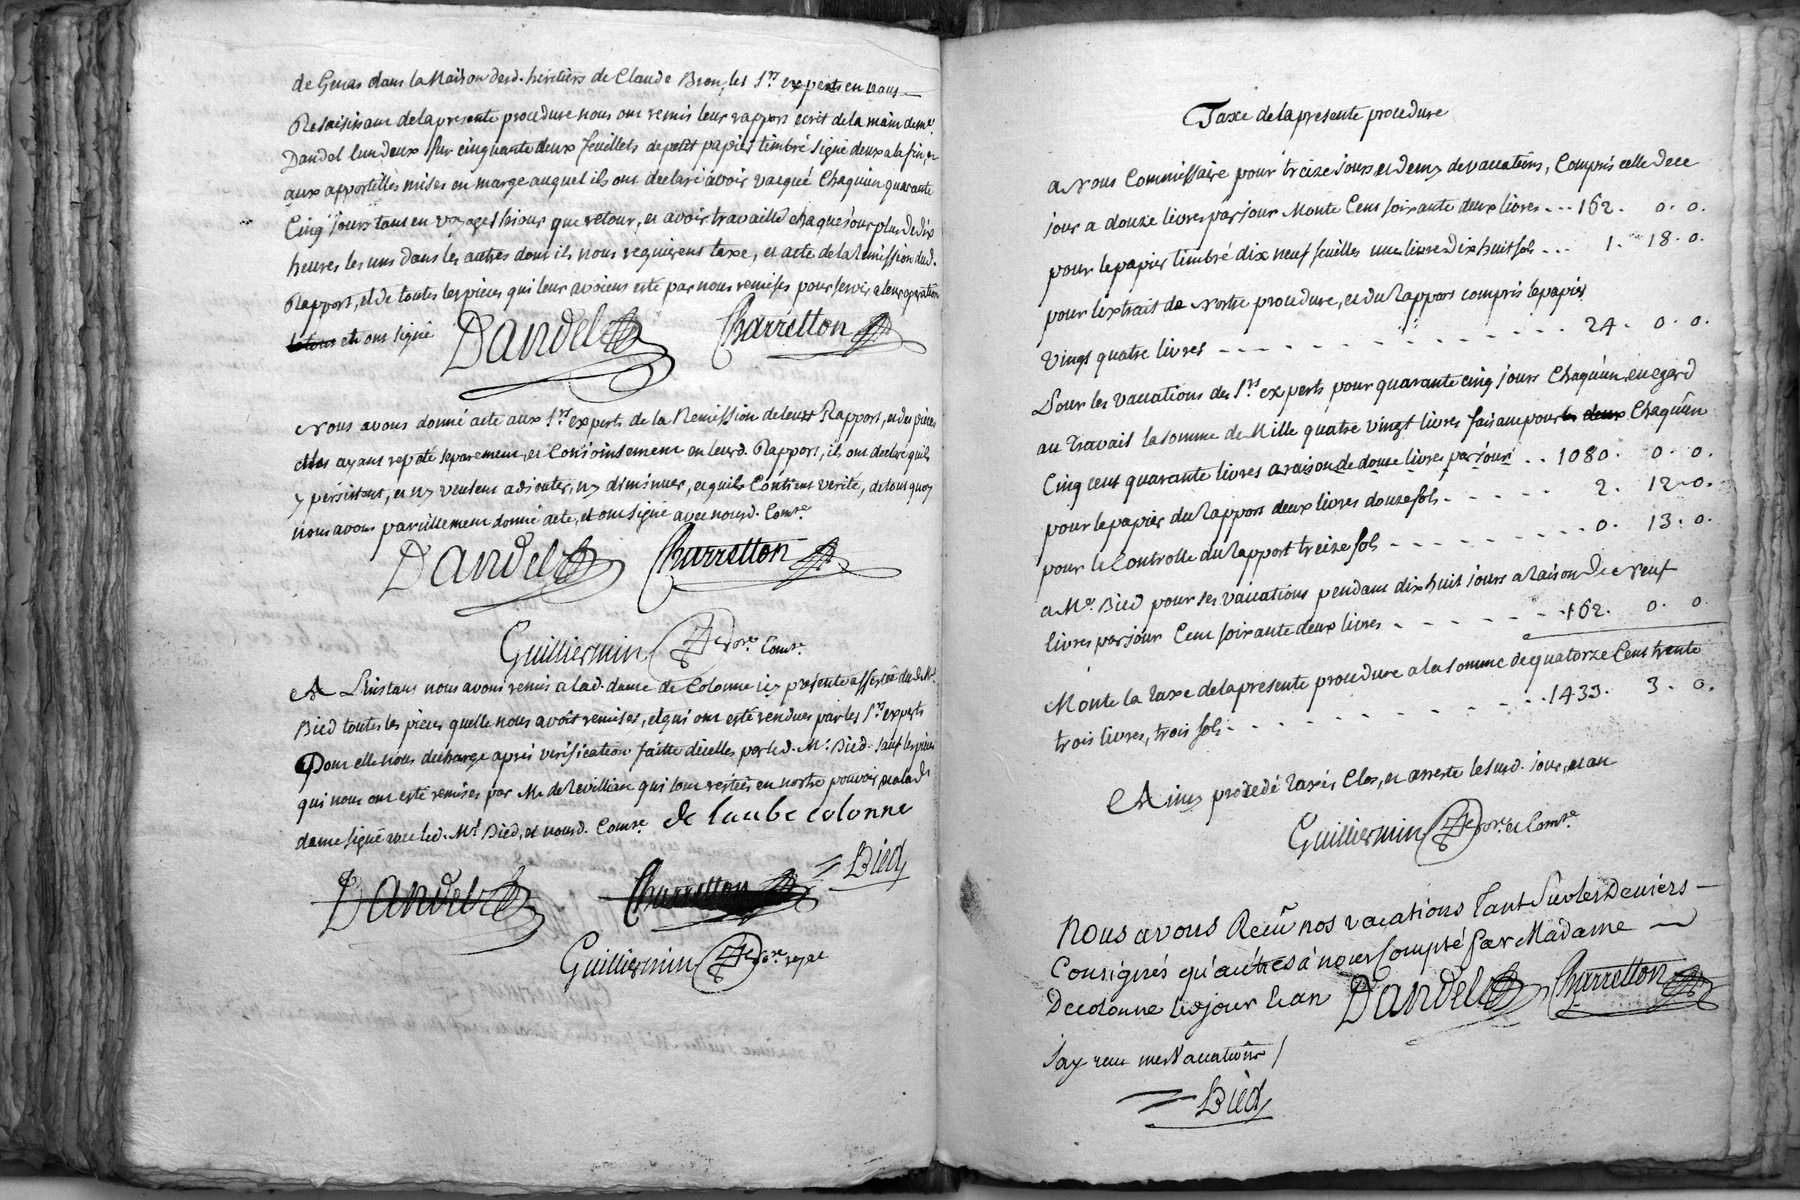 de Genas dans la Maison desd. héritiers de Claude Bron, les Srs experts en vaus
Resaisissant de la presente procedure nous ont remis leur rapport écrit de la main de me.
Dandel l'un deux sur cinquante deux feuillets de petit papier timbré signé deux a la fin, et
aux apportilles mises en marge auquel ils ont declaré avoir vacqué Chaquun quarante
Cinq Jours tant en voyage sejour que retour, et avoir travaillé chaque jour plus de dix
heures les uns dans les autres dont ils nous requierent taxe, et acte de la Remission dud.
Rapport, et de toutes les pieces qui leur avoient esté par nous remises pour servir a leur operation
et ont signé Dandel Charretton
Nous avons donné acte aux Srs experts de la Remission de leur Rapport, et des pieces
elles ayant repeté separement, et Conjointement en leurd. Rapport, ils ont declaré quils
y persistent, et n'y veulent adjouter, n'y diminuer, et quils Contient verité, de tout quoy
nous avons pareillement donné acte, et ont signé avec nousd. Comre.
Dandel Charretton
Guilliermin Comre.
A L'instant nous avons remis a lad. dame de Colonne icy presente assistée dud. Me.
Bied toutes les pieces quelle nous avoit remises, et qui ont esté rendues par les Srs experts
Dont elle nous decharge après verification faitte d'icelles par led. Me. Bied. sauf les pieces
qui nous ont esté remises par Mr. de Revillian qui sont restées en nostre pouvoir, et a lad.
dame signé avec led. Me. Bied, et nousd. Comre. de laube colonne
Bied
Dandel Charretton
Guilliermin
Taxe de la presente procedure
a Nous Commissaire pour treize jours et demy de vacations, Compris celle de ce
jour a douze livres par jour Monte Cent soixante deux livres ... 162. 0. 0.
pour le papier timbré dix neuf feuilles une livre dix huit sols ... 1. 18. 0.
pour l'extrait de Nostre procedure, et du Rapport compris le papier
vingt quatre livres - - - - - - - - - - - - - 24. 0. 0.
Pour les vacations des Srs. experts pour quarante cinq jours Chaquun, eu egard
au travail la somme de Mille quatre vingt livres faisant pour les deux Chaquun
Cinq cent quarante livres a raison de douze livres par jour . . 1080. 0. 0.
pour le papier du Rapport deux livres douze sols - - - - - 2. 12. 0.
pour le Controlle du Rapport treize sols - - - - - - - - 0. 13. 0.
a Me. Bied pour ses vacations pendant dix huit jours a Raison de Neuf
livres par jour Cent soixante deux livres - - - - - - - 162. 0. 0.
Monte la taxe de la presente procedure a la somme de quatorze Cent trente
trois livres, trois sols - - - - - - - - - - - 1433. 3. 0.
Ainsy procedé taxé, Clos, et arresté lesusd. jour, et an
Guilliermin et Comre.
Nous avons Receu nos vacations Tant Sur les Deniers
Consignés qu'autres à nous Compté par Madame
De colonne led jour et an Dandel Charretton
Jay receu mes Vacations /
Bied